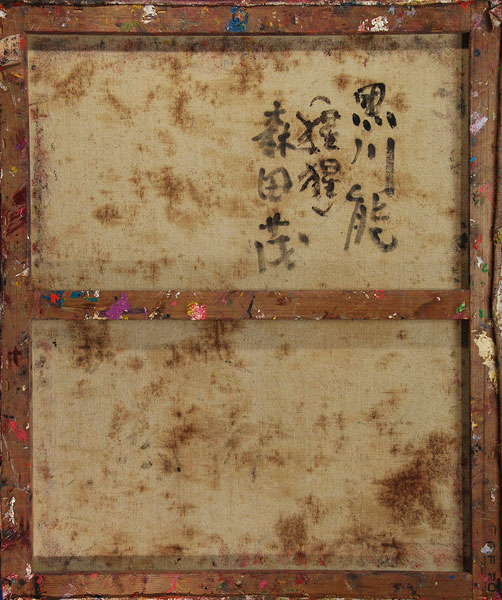 黒川能
（猩猩）
森田茂